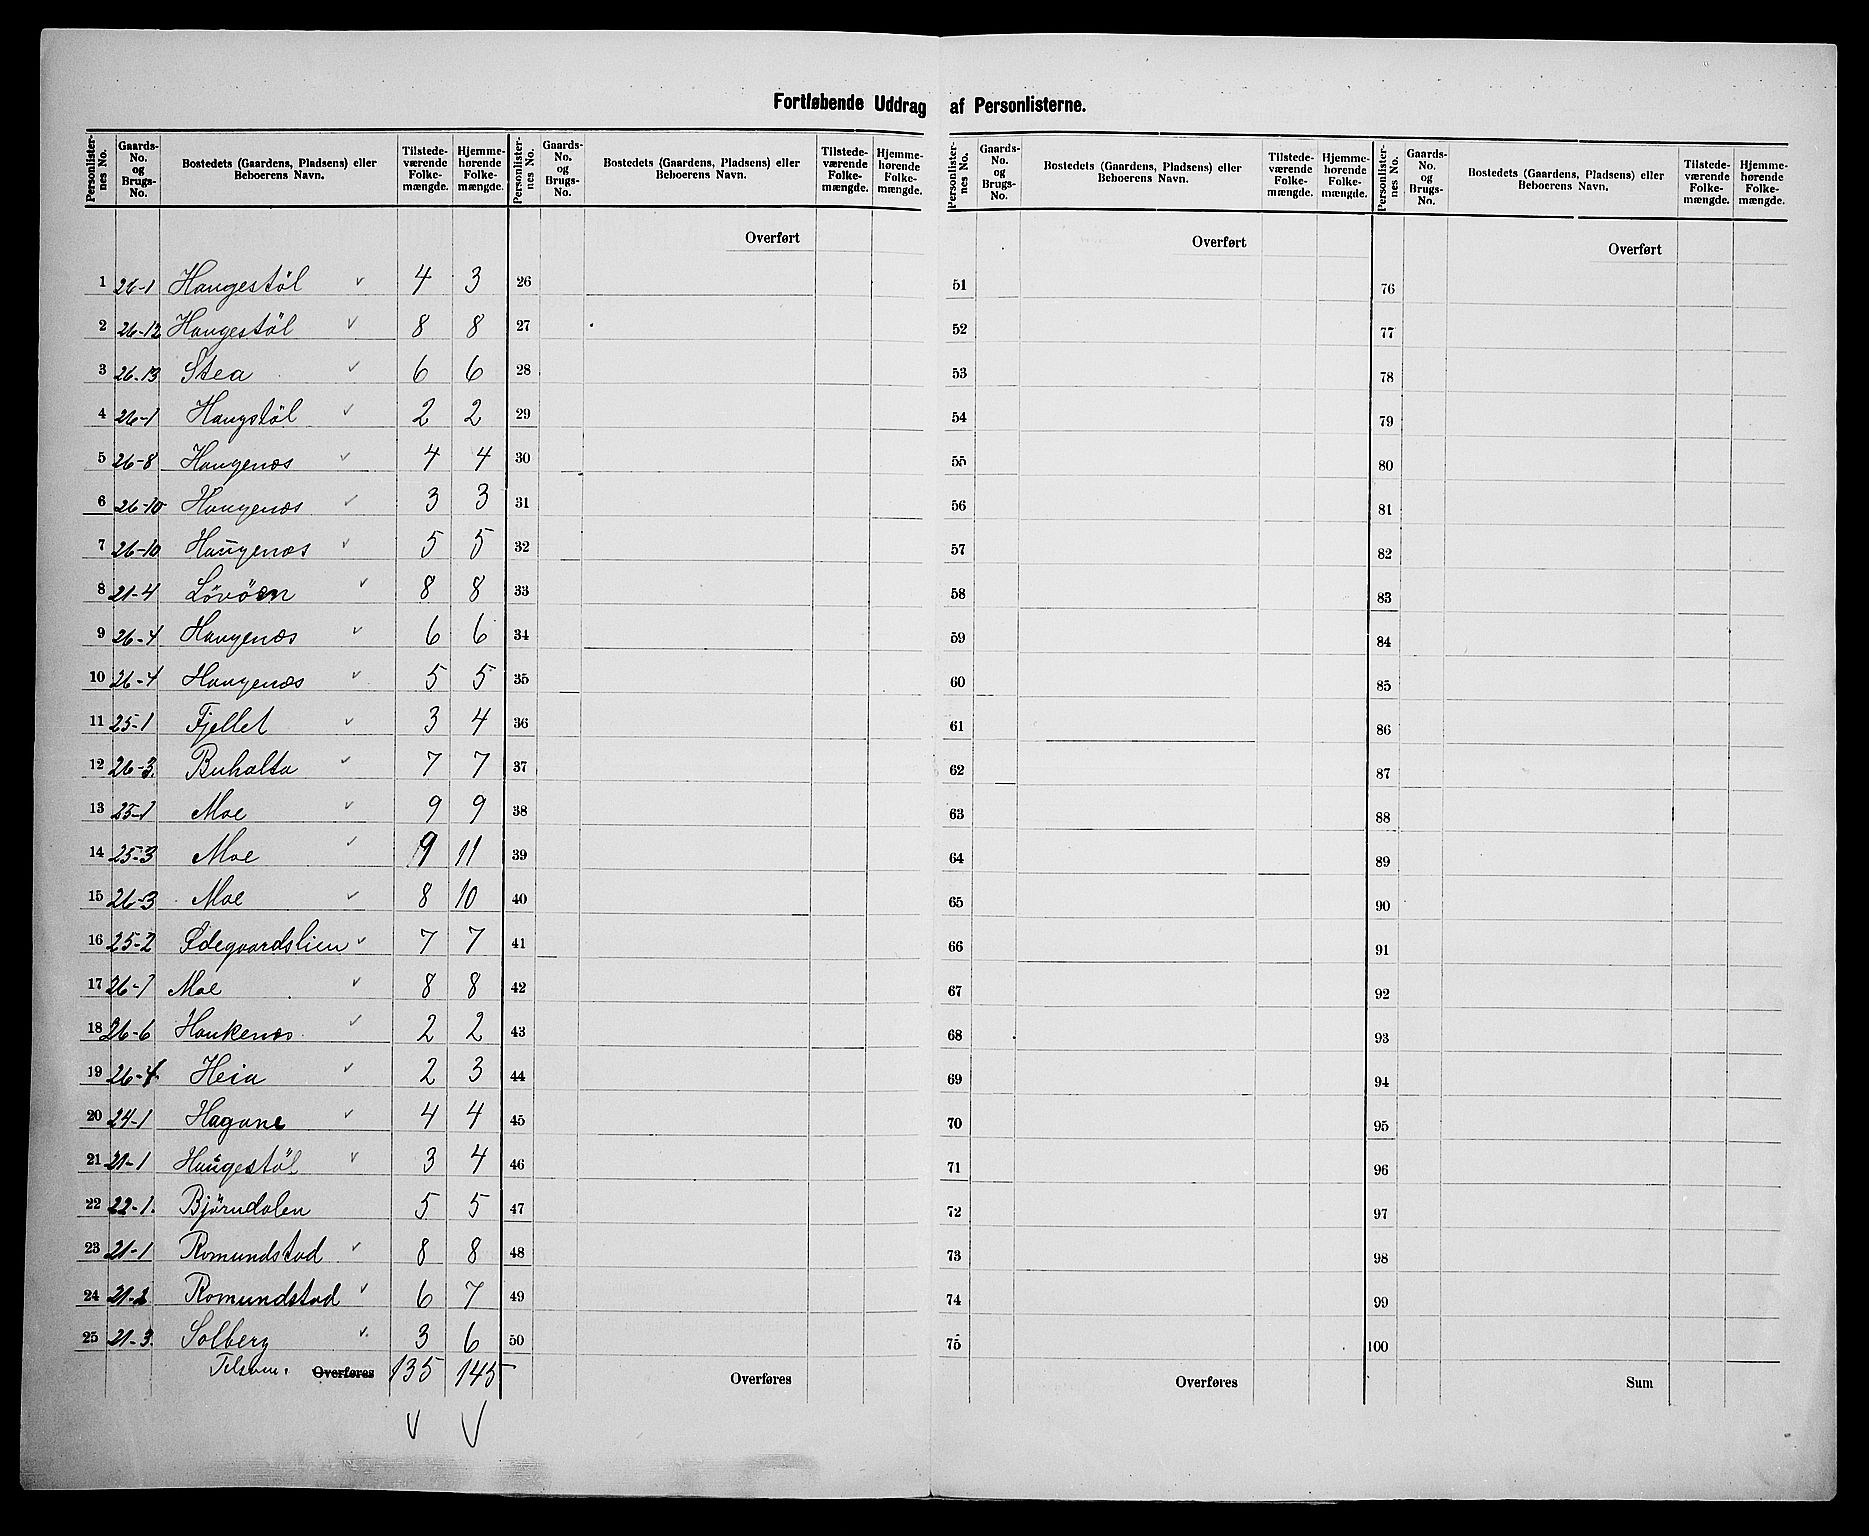 Fortløbende Uddrag af Personlisterne.
Personlister- nes No. Gaards- No. og Brugs- No. Bostedets (Gaardens, Pladsens) eller Beboerens Navn. Tilstede- værende Folke- mængde. Hjemme- hørende Folke- mængde. Personlister- nes No. Gaards- No. og Brugs- No. Bostedets (Gaardens, Pladsens) eller Beboerens Navn. Tilstede- værende Folke- mængde. Hjemme- hørende Folke- mængde. Personlister- nes No. Gaards- No. og Brugs- No. Bostedets (Gaardens, Pladsens) eller Beboerens Navn. Tilstede- værende Folke- mængde. Hjemme- hørende Folke- mængde. Personlister- nes No. Gaards- No. og Brugs- No. Bostedets (Gaardens, Pladsens) eller Beboerens Navn. Tilstede- værende Folke- mængde. Hjemme- hørende Folke- mængde.
Overført Overført Overført
1 26-1 Haugestöl 4 3 26 51 76
2 26-12 Haugestöl 8 8 27 52 77
3 26-13 Stea 6 6 28 53 78
4 26-1 Haugstöl 2 2 29 54 79
5 26-8 Haugenæs 4 4 30 55 80
6 26-10 Haugenæs 3 3 31 56 81
7 26-10 Haugenæs 5 5 32 57 82
8 21-4 Lövöen 8 8 33 58 83
9 26-4 Haugenæs 6 6 34 59 84
10 26-4 Haugenæs 5 5 35 60 85
11 25-1 Fjellet 3 4 36 61 86
12 26-3. Buhalta 7 7 37 62 87
13 25-1 Moe 9 9 38 63 88
14 25-3 Moe 9 11 39 64 89
15 26-3 Moe 8 10 40 65 90
16 25-2 Ødegaardslien 7 7 41 66 91
17 26-1 Moe 8 8 42 67 92
18 26-6 Haukenæs 2 2 43 68 93
19 26-4 Heia 2 3 44 69 94
20 24-1 Hagane 4 4 45 70 95
21 21-1 Haugestöl 3 4 46 71 96
22 22-1. Björndalen 5 5 47 72 97
23 21-1 Romundstad 8 8 48 73 98
24 21-2 Romundstad 6 7 49 74 99
25 21-3. Solberg 3 6 50 75 100
Tilsam. Overføres 135 145 Overføres Overføres Sum